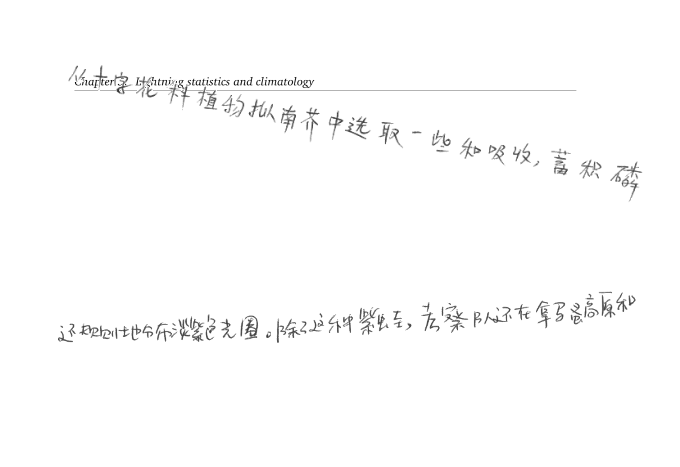 Chapter 2 Lightning statistics and climatology
从十字花科植物拟南芥中选取一些和吸收,蓄积磷
还规则地分布淡紫色光圈。除了这种紫虫至,考察队还在拿马蚤高原和